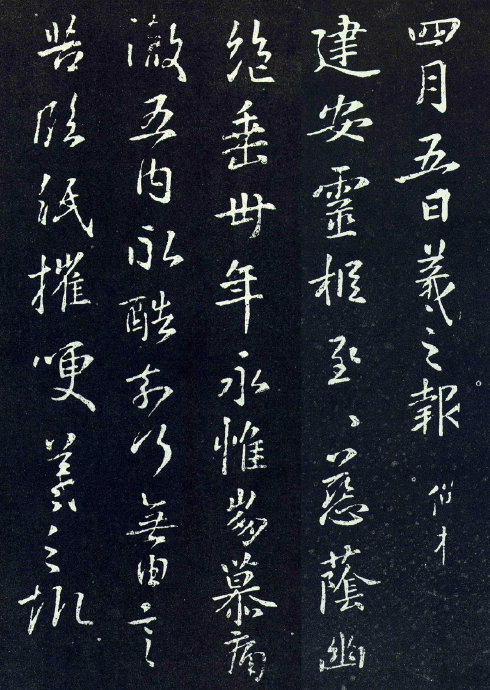 四月五日羲之報
建安靈柩至々慈蔭幽
絶垂卅年永惟崩慕痛
徹五内永酷奈何無由言
苦臨紙摧哽羲之報